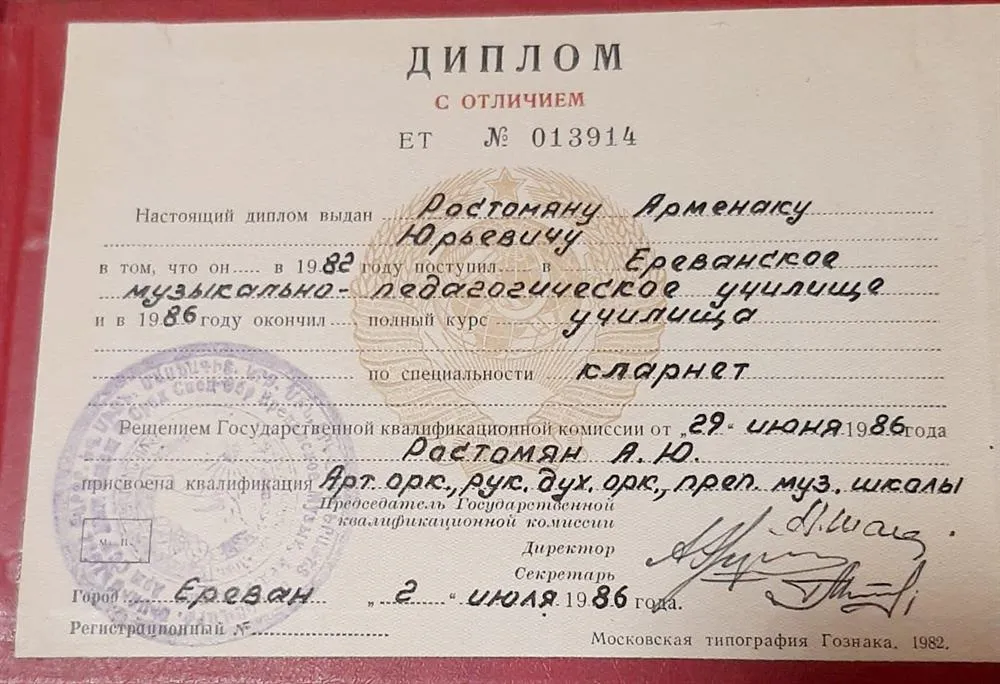 ДИПЛОМ
С ОТЛИЧИЕМ
ЕТ № 013914
Настоящий диплом выдан Ростомяну Арменаку
Юрьевичу
в том, что он в 1982 году поступил в Ереванское
музыкально-педагогическое училище
и в 1986 году окончил полный курс училища
по специальности кларнет
Решением Государственной квалификационной комиссии от „29“ июня 1986 года
Ростомян А. Ю.
присвоена квалификация Арт. орк., рук. дух. орк., преп. муз. школы
Председатель Государственной
квалификационной комиссии
Директор
Секретарь
м. п.
Город Ереван „2“ июля 1986 года.
Регистрационный №
Московская типография Гознака. 1982.